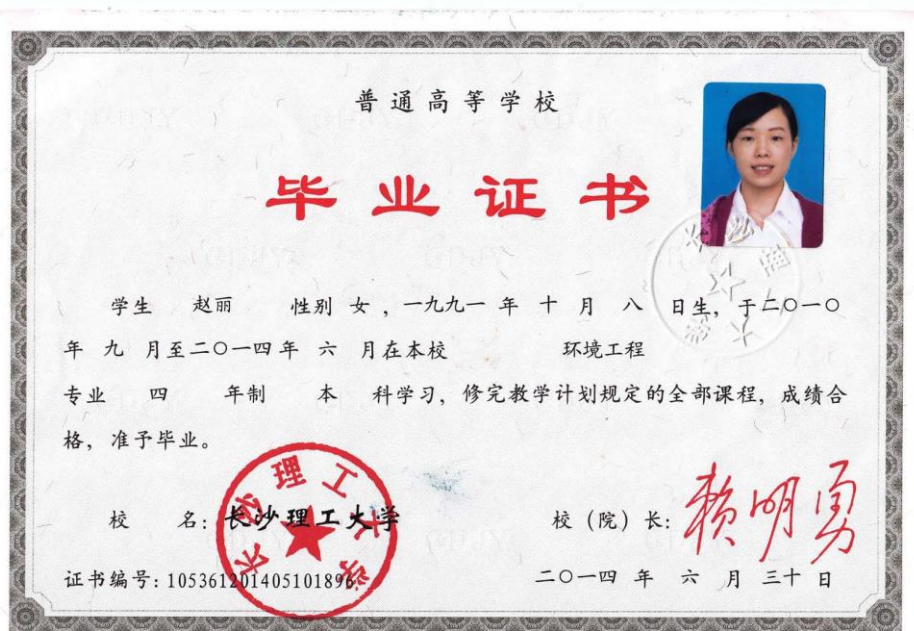 普通高等学校
毕业证书
学生 赵丽 性别 女，一九九一 年 十 月 八 日生，于二〇一〇
年 九 月至二〇一四年 六 月在本校 环境工程
专业 四 年制 本 科学习，修完教学计划规定的全部课程，成绩合
格，准予毕业。
校 名：长沙理工大学 校（院）长：赖明勇
长沙理工大学
证书编号：105361201405101896 二〇一四 年 六 月 三十 日